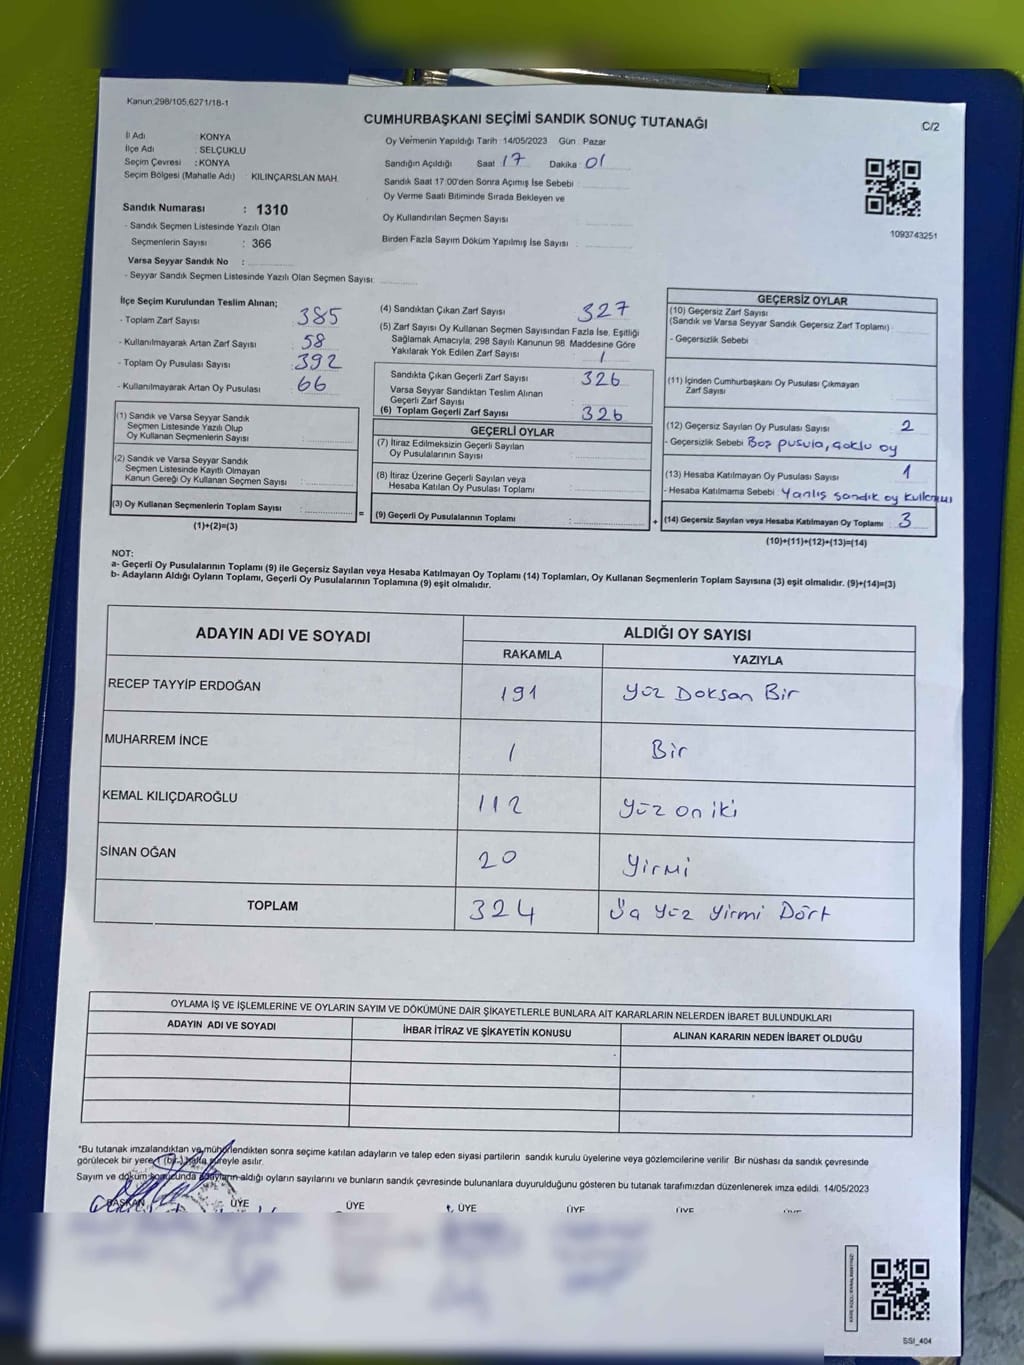 Kanun:298/105,6271/18-1
CUMHURBAŞKANI SEÇİMİ SANDIK SONUÇ TUTANAĞI
C/2
İl Adı : KONYA
İlçe Adı : SELÇUKLU
Seçim Çevresi : KONYA
Seçim Bölgesi (Mahalle Adı) : KILINÇARSLAN MAH.
Sandık Numarası : 1310
- Sandık Seçmen Listesinde Yazılı Olan
Seçmenlerin Sayısı : 366
Varsa Seyyar Sandık No :
- Seyyar Sandık Seçmen Listesinde Yazılı Olan Seçmen Sayısı:
Oy Vermenin Yapıldığı Tarih :14/05/2023 Gün : Pazar
Sandığın Açıldığı Saat : 17 Dakika : 01
Sandık Saat 17:00'den Sonra Açımış İse Sebebi :
Oy Verme Saati Bitiminde Sırada Bekleyen ve
Oy Kullandırılan Seçmen Sayısı
Birden Fazla Sayım Döküm Yapılmış İse Sayısı :
1093743251
İlçe Seçim Kurulundan Teslim Alınan;
- Toplam Zarf Sayısı : 385
- Kullanılmayarak Artan Zarf Sayısı : 58
- Toplam Oy Pusulası Sayısı : 392
- Kullanılmayarak Artan Oy Pusulası : 66
(1) Sandık ve Varsa Seyyar Sandık
Seçmen Listesinde Yazılı Olup
Oy Kullanan Seçmenlerin Sayısı :
(2) Sandık ve Varsa Seyyar Sandık
Seçmen Listesinde Kayıtlı Olmayan
Kanun Gereği Oy Kullanan Seçmen Sayısı :
(3) Oy Kullanan Seçmenlerin Toplam Sayısı :
(1)+(2)=(3)
=
(4) Sandıktan Çıkan Zarf Sayısı : 327
(5) Zarf Sayısı Oy Kullanan Seçmen Sayısından Fazla İse, Eşitliği
Sağlamak Amacıyla; 298 Sayılı Kanunun 98. Maddesine Göre
Yakılarak Yok Edilen Zarf Sayısı : 1
Sandıkta Çıkan Geçerli Zarf Sayısı : 326
Varsa Seyyar Sandıktan Teslim Alınan
Geçerli Zarf Sayısı :
(6) Toplam Geçerli Zarf Sayısı : 326
GEÇERLİ OYLAR
(7) İtiraz Edilmeksizin Geçerli Sayılan
Oy Pusulalarının Sayısı :
(8) İtiraz Üzerine Geçerli Sayılan veya
Hesaba Katılan Oy Pusulası Toplamı :
(9) Geçerli Oy Pusulalarının Toplamı :
+
GEÇERSİZ OYLAR
(10) Geçersiz Zarf Sayısı
(Sandık ve Varsa Seyyar Sandık Geçersiz Zarf Toplamı) :
- Geçersizlik Sebebi :
(11) İçinden Cumhurbaşkanı Oy Pusulası Çıkmayan
Zarf Sayısı :
(12) Geçersiz Sayılan Oy Pusulası Sayısı : 2
- Geçersizlik Sebebi : Boş pusula, çoklu oy
(13) Hesaba Katılmayan Oy Pusulası Sayısı : 1
- Hesaba Katılmama Sebebi : Yanlış sandık oy
(14) Geçersiz Sayılan veya Hesaba Katılmayan Oy Toplamı : 3
(10)+(11)+(12)+(13)=(14)
NOT:
a- Geçerli Oy Pusulalarının Toplamı (9) ile Geçersiz Sayılan veya Hesaba Katılmayan Oy Toplamı (14) Toplamları, Oy Kullanan Seçmenlerin Toplam Sayısına (3) eşit olmalıdır. (9)+(14)=(3)
b- Adayların Aldığı Oyların Toplamı, Geçerli Oy Pusulalarının Toplamına (9) eşit olmalıdır.
ADAYIN ADI VE SOYADI
ALDIĞI OY SAYISI
RAKAMLA YAZIYLA
RECEP TAYYİP ERDOĞAN 191 Yüz Doksan Bir
MUHARREM İNCE 1 Bir
KEMAL KILIÇDAROĞLU 112 Yüz on iki
SİNAN OĞAN 20 Yirmi
TOPLAM 324 Yüz Yirmi Dört
OYLAMA İŞ VE İŞLEMLERİNE VE OYLARIN SAYIM VE DÖKÜMÜNE DAİR ŞİKAYETLERLE BUNLARA AİT KARARLARIN NELERDEN İBARET BULUNDUKLARI
ADAYIN ADI VE SOYADI İHBAR İTİRAZ VE ŞİKAYETİN KONUSU ALINAN KARARIN NEDEN İBARET OLDUĞU
*Bu tutanak imzalandıktan ve mühürlendikten sonra seçime katılan adayların ve talep eden siyasi partilerin sandık kurulu üyelerine veya gözlemcilerine verilir. Bir nüshası da sandık çevresinde
görülecek bir yere 1 (bir) hafta süreyle asılır.
Sayım ve döküm sonucunda adayların aldığı oyların sayılarını ve bunların sandık çevresinde bulunanlara duyurulduğunu gösteren bu tutanak tarafımızdan düzenlenerek imza edildi. 14/05/2023
BAŞKAN ÜYE ÜYE ÜYE ÜYE ÜYE
SSI_404